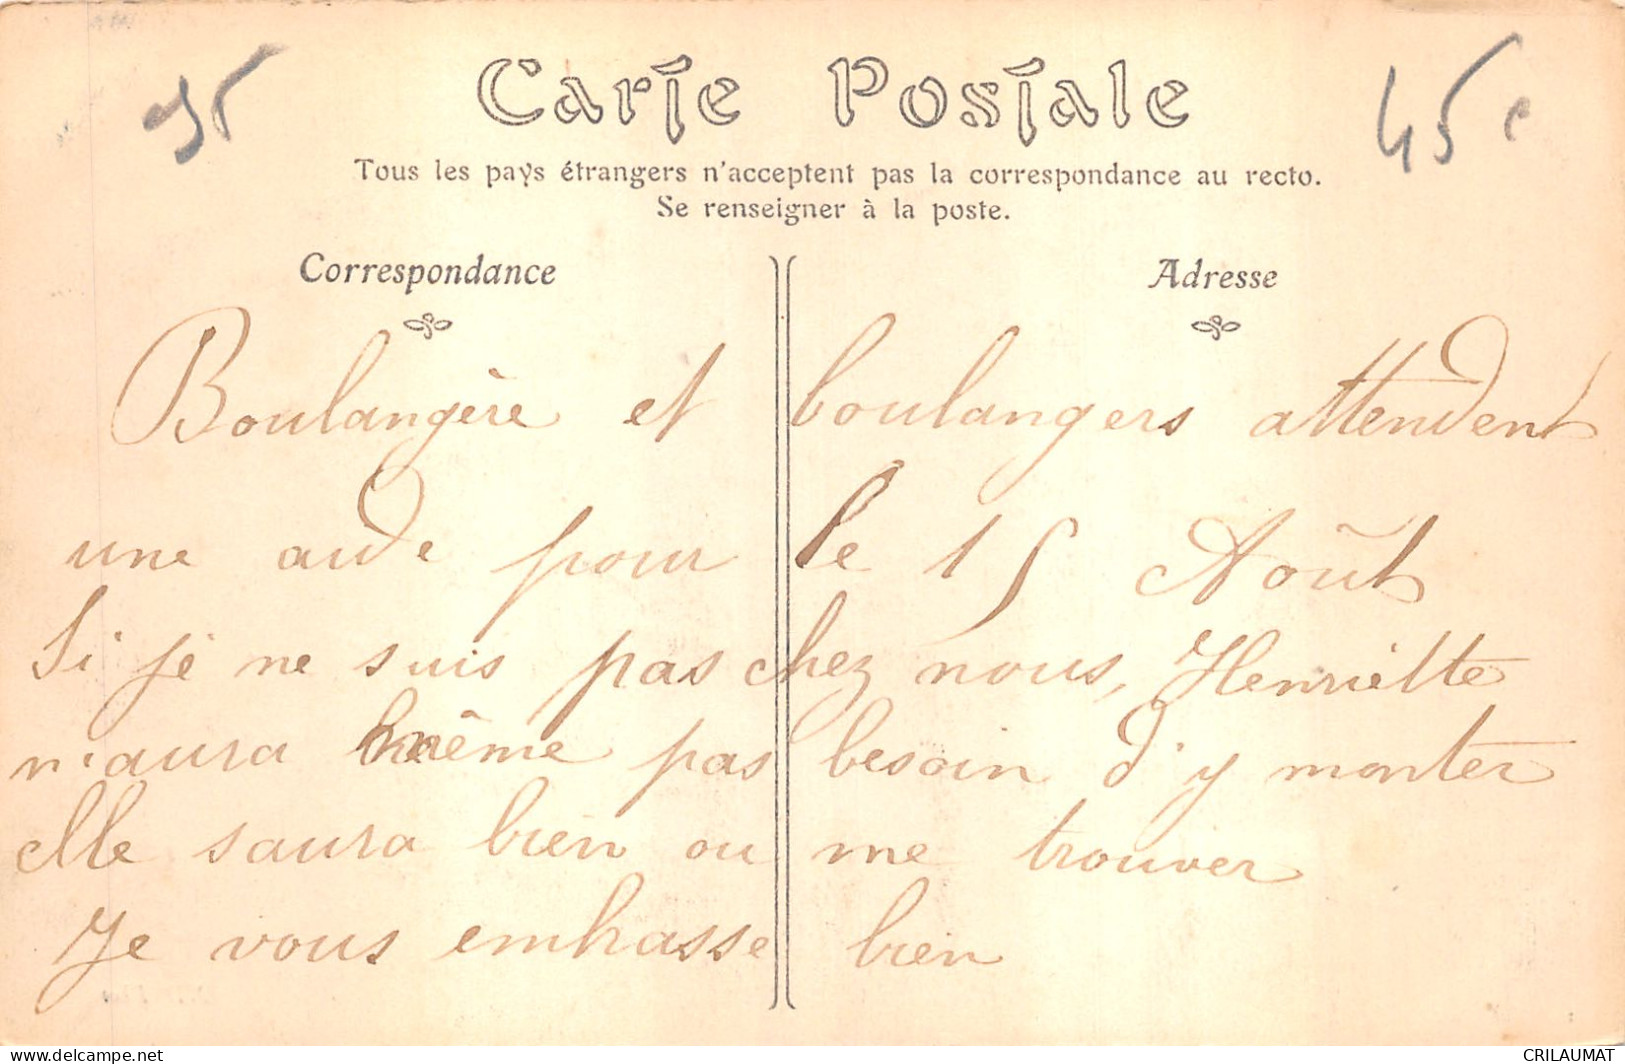 95
45e
Carte Postale
Tous les pays étrangers n'acceptent pas la correspondance au recto.
Se renseigner à la poste.
Correspondance
Adresse
Boulangère et boulangers attendent
une aide pour le 15 Août
Si je ne suis pas chez nous, Henriette
n'aura même pas besoin d'y monter
elle saura bien ou me trouver
Je vous embrasse bien
www.delcampe.net
CRILAUMAT